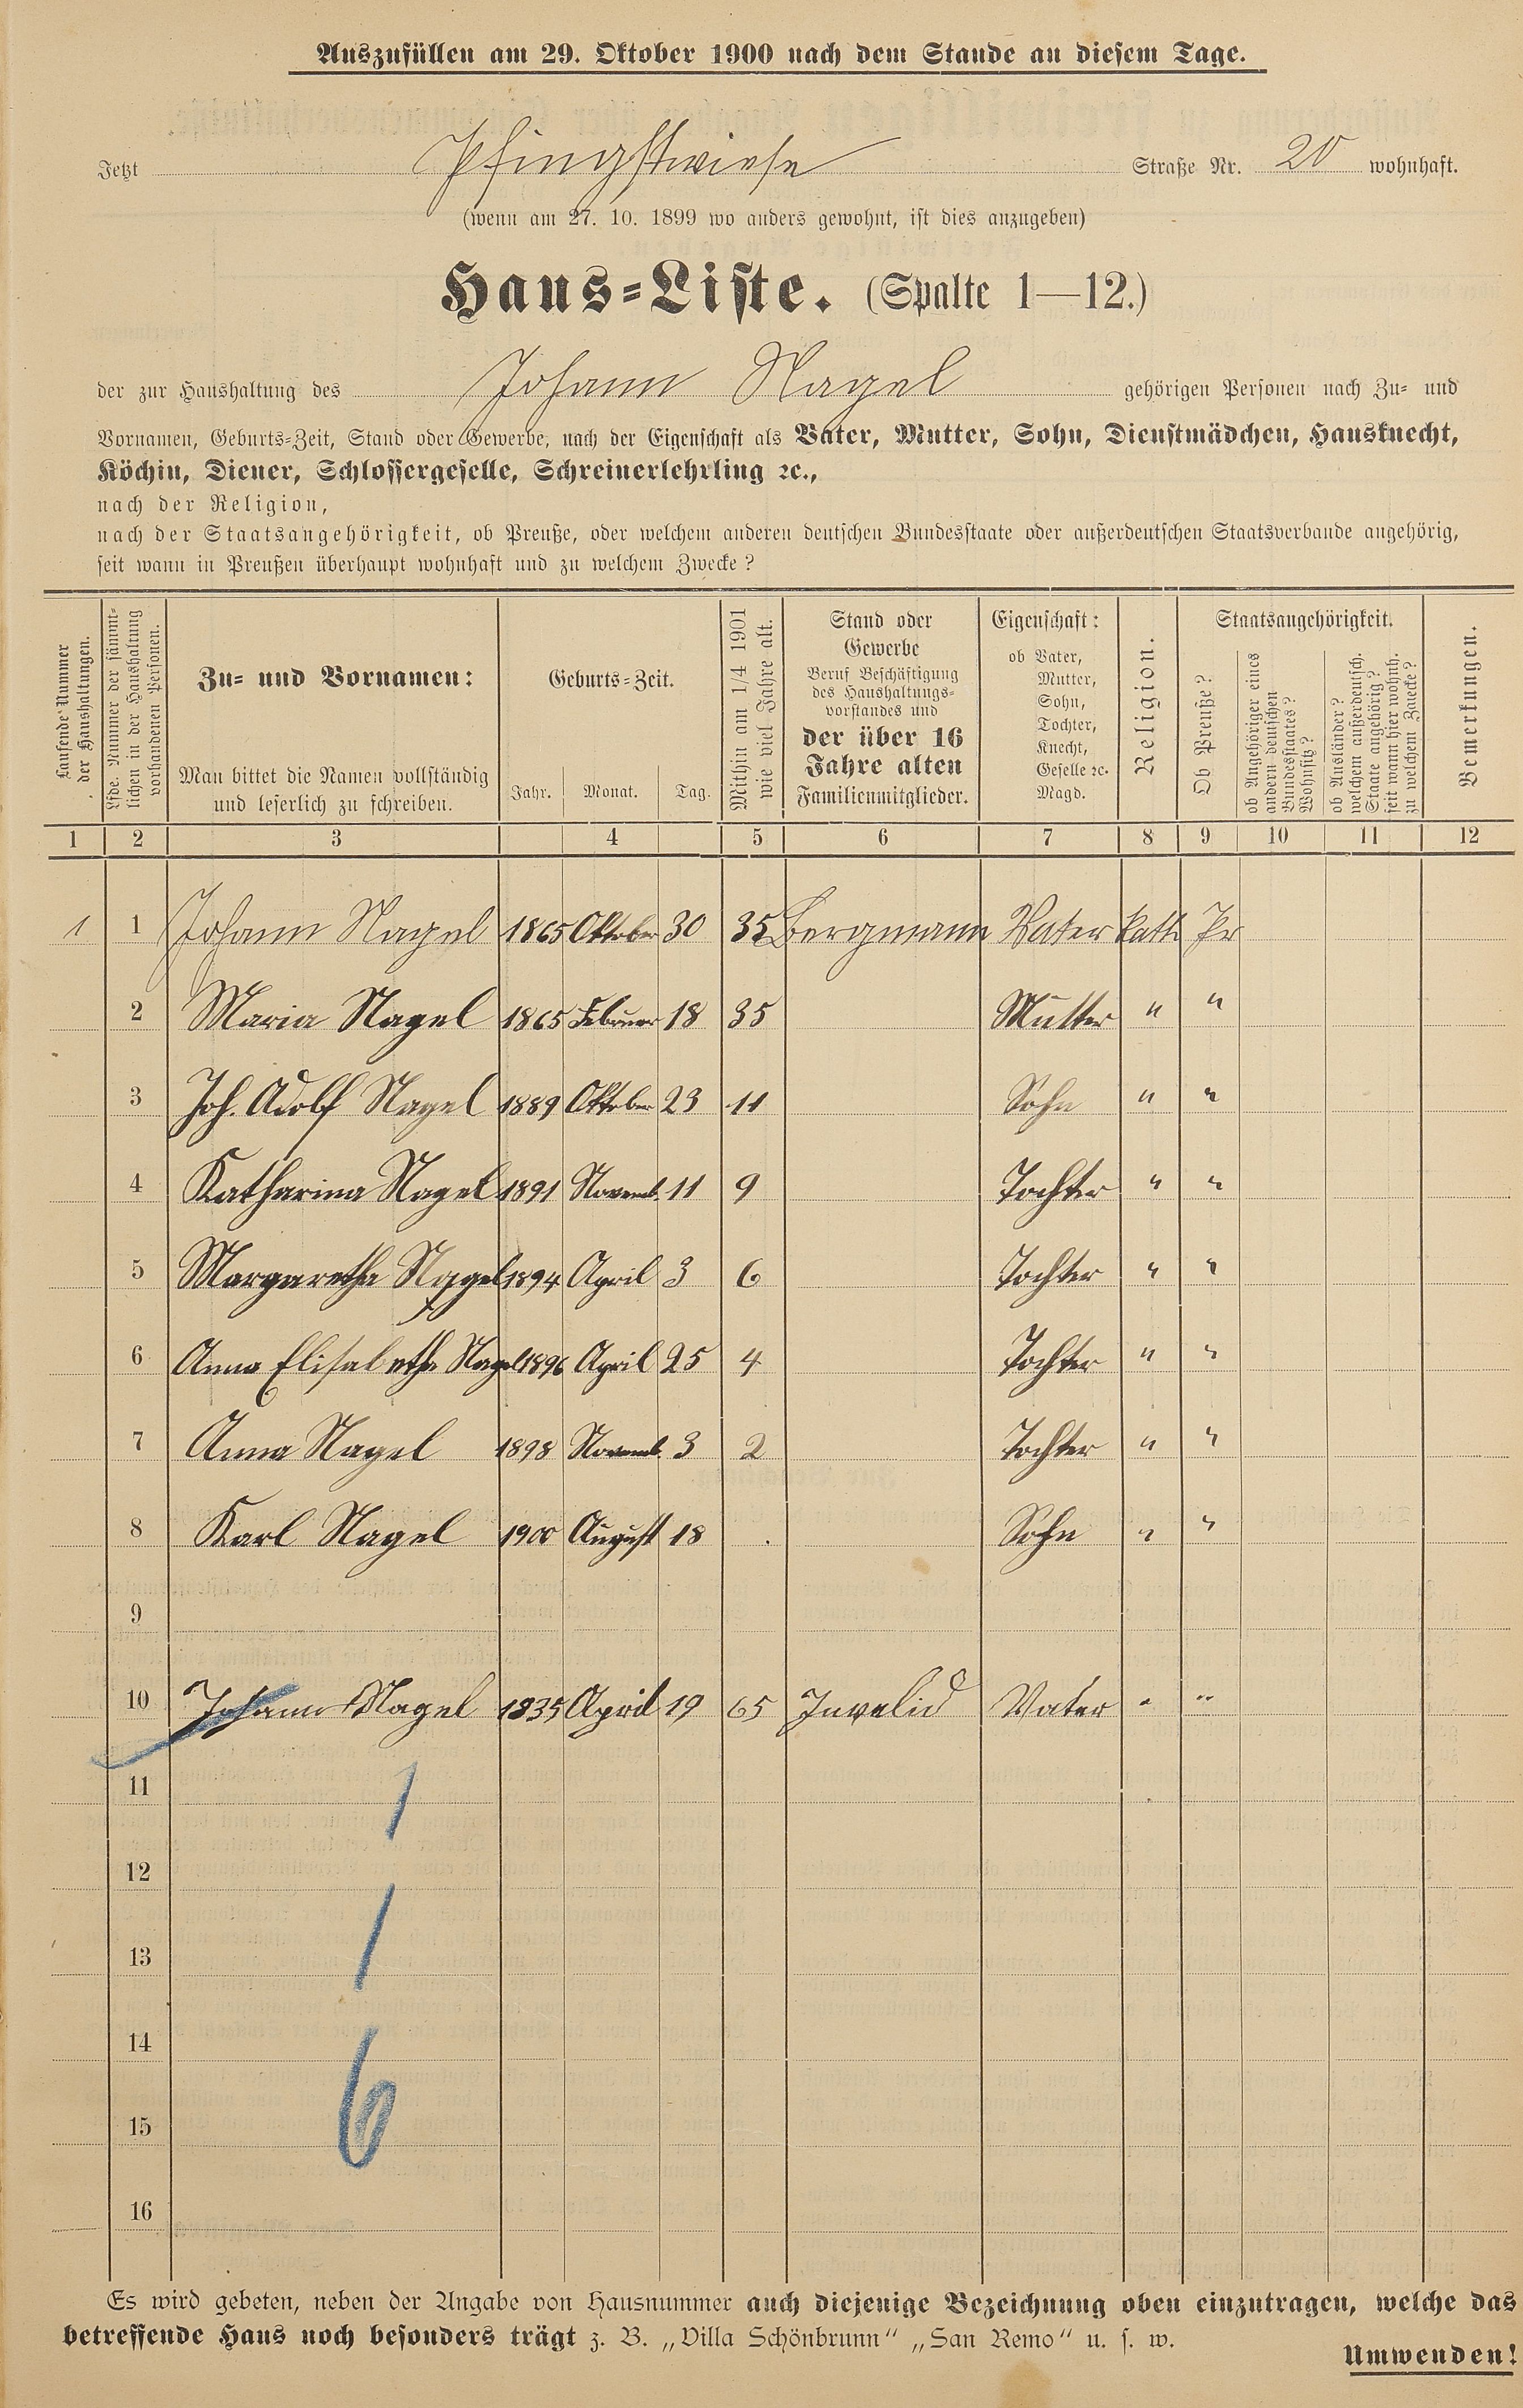 Auszufüllen am 29. Oktober 1900 nach dem Stande an diesem Tage.
Jetzt Pfingstwiese Straße Nr. 20 wohnhaft.
(wenn am 27. 10. 1899 wo anders gewohnt, ist dies anzugeben)
Haus=Liste. (Spalte 1—12.)
der zur Haushaltung des Johann Nagel gehörigen Personen nach Zu= und
Vornamen, Geburts=Zeit, Stand oder Gewerbe, nach der Eigenschaft als Vater, Mutter, Sohn, Dienstmädchen, Hausknecht,
Köchin, Diener, Schlossergeselle, Schreinerlehrling ꝛc.,
nach der Religion,
nach der Staatsangehörigkeit, ob Preuße, oder welchem anderen deutschen Bundesstaate oder außerdeutschen Staatsverbande angehörig,
seit wann in Preußen überhaupt wohnhaft und zu welchem Zwecke?
Laufende Nummer
der Haushaltungen.
Lfde. Nummer der sämmt-
lichen in der Haushaltung
vorhandenen Personen.
Zu= und Vornamen:
Man bittet die Namen vollständig
und leserlich zu schreiben.
Geburts=Zeit.
Jahr. Monat. Tag.
Mithin am 1/4 1901
wie viel Jahre alt.
Stand oder
Gewerbe
Beruf Beschäftigung
des Haushaltungs=
vorstandes und
der über 16
Jahre alten
Familienmitglieder.
Eigenschaft:
ob Vater,
Mutter,
Sohn,
Tochter,
Knecht,
Geselle ꝛc.
Magd.
Religion.
Staatsangehörigkeit.
Ob Preuße?
ob Angehöriger eines
andern deutschen
Bundesstaates?
Wohnsitz?
ob Ausländer?
welchem außerdeutsch.
Staate angehörig?
seit wann hier wohnh.
zu welchem Zwecke?
Bemerkungen.
1 2 3 4 5 6 7 8 9 10 11 12
1 1 Johann Nagel 1865 Oktober 30 35 Bergmann Vater kath Pr
2 Maria Nagel 1865 Februar 18 35 Mutter " "
3 Joh. Adolf Nagel 1889 Oktober 23 11 Sohn " "
4 Katharina Nagel 1891 Novemb. 11 9 Tochter " "
5 Margaretha Nagel 1894 April 3 6 Tochter " "
6 Anna Elisabetha Nagel 1896 April 25 4 Tochter " "
7 Anna Nagel 1898 Novemb. 3 2 Tochter " "
8 Karl Nagel 1900 August 18 . Sohn " "
9
10 Johann Nagel 1835 April 19 65 Invalid Vater " "
11
1
12
13
1
14
15
6
16
Es wird gebeten, neben der Angabe von Hausnummer auch diejenige Bezeichnung oben einzutragen, welche das
betreffende Haus noch besonders trägt z. B. „Villa Schönbrunn“ „San Remo“ u. s. w.
Umwenden!